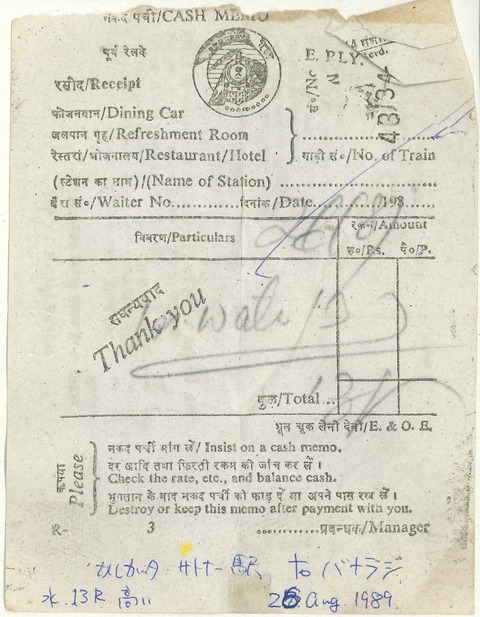 नकद पर्ची/CASH MEMO
पूर्व रेलवे
E. RLY.
रसीद/Receipt
सं०/No
43134
फोजनयान/Dining Car
जलपान गृह/Refreshment Room
रेस्तरां/भोजनालय/Restaurant/Hotel
गाड़ी सं०/No. of Train
(स्टेशन का नाम)/(Name of Station)
बैरा सं०/Waiter No............दिनांक/Date............198....
विवरण/Particulars
रकम/Amount
रु०/Rs. पै०/P.
सधन्यवाद
Thank you
कुल/Total...
भूल चूक लेनी देनी/E. & O. E.
कृपया
Please
नकद पर्ची मांग लें/ Insist on a cash memo.
दर आदि तथा फिरती रकम की जांच कर लें ।
Check the rate, etc., and balance cash.
भुगतान के बाद नकद पर्ची को फाड़ दें या अपने पास रख लें ।
Destroy or keep this memo after payment with you.
R- 3 ............प्रबन्धक/Manager
駅 to バナラシ
水. 13R 高い 26 Aug 1989.